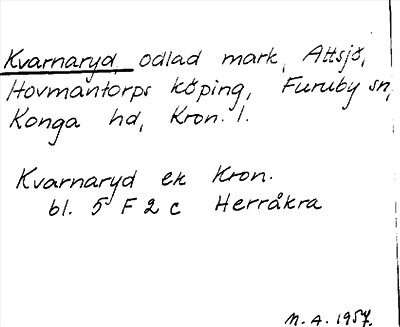 Kvarnaryd, odlad mark, Attsjö,
Hovmantorps köping, Furuby sn,
Konga hd, Kron. l.
Kvarnaryd ek Kron.
bl. 5 F 2 c Herråkra
N. A. 1957.